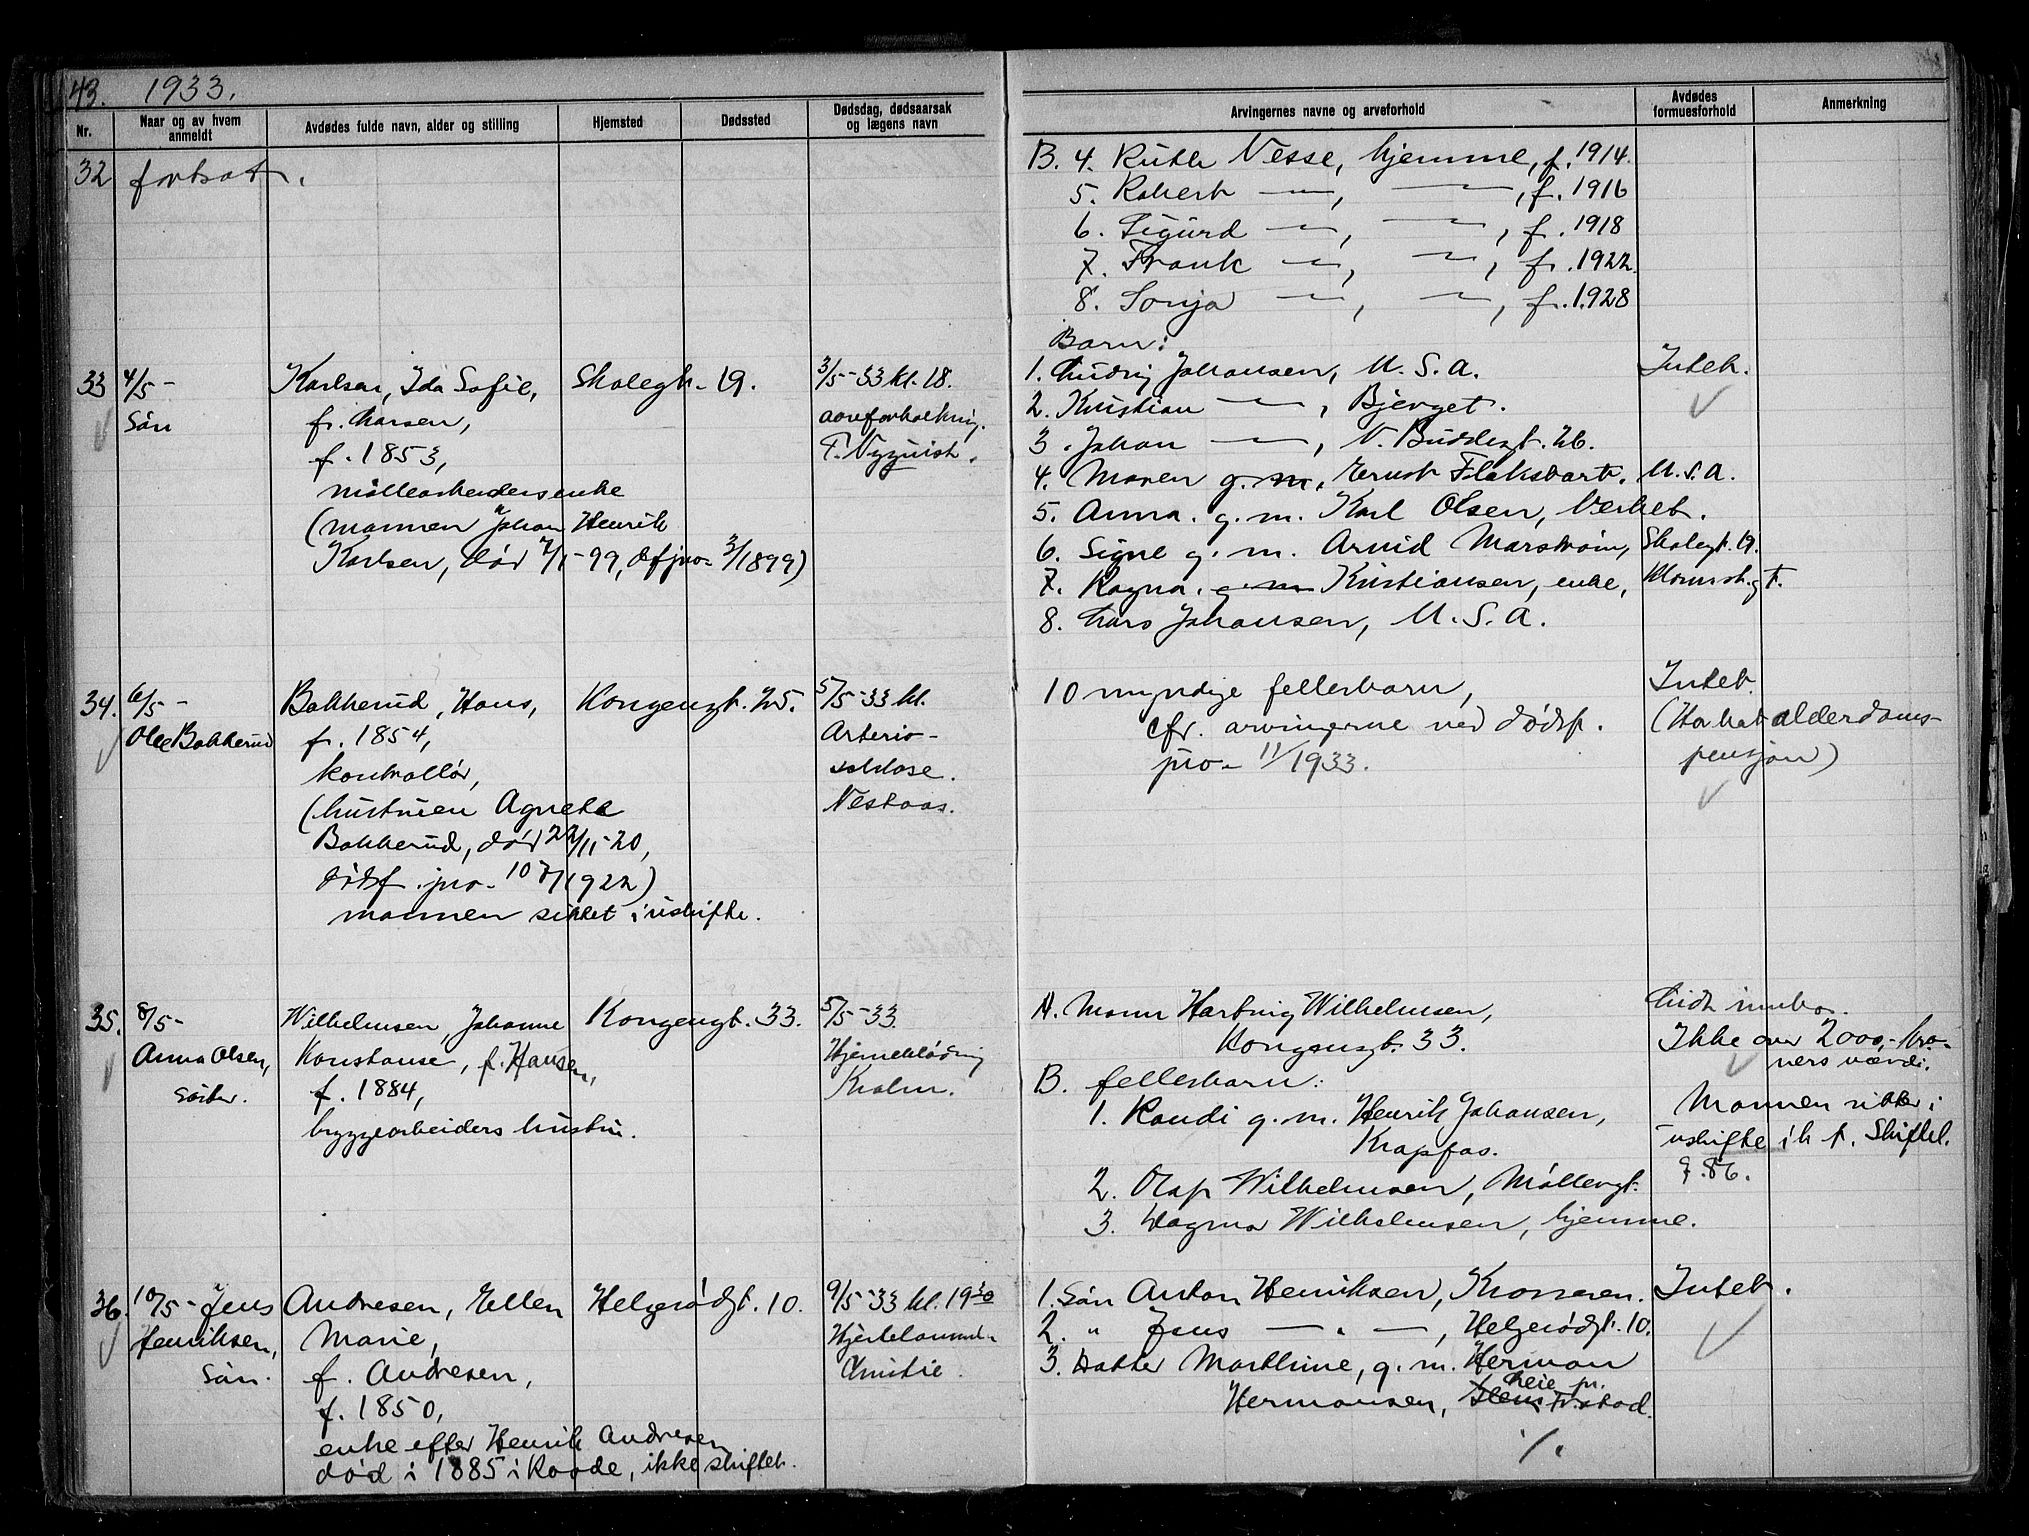 43. 1933.
Nr.
Naar og av hvem anmeldt
Avdødes fulde navn, alder og stilling
Hjemsted
Dødssted
Dødsdag, dødsaarsak og lægens navn
Arvingernes navne og arveforhold
Avdødes formuesforhold
Anmerkning
32 fortsat.
B. 4. Ruth Nesse, hjemme, f. 1914.
5. Robert — , — , f. 1916
6. Sigurd — , — , f. 1918
7. Frank — , — , f. 1922.
8. Sonja — , — , f. 1928
33 4/5 -
Søn
Karlsen, Ida Sofie,
f. Larsen,
f. 1853,
møllearbeidersenke
(mannen Johan Henrik
Karlsen, død 7/1-99, dfpro. 3/1899)
Skolegt. 19.
3/5-33 kl. 18.
aareforkalkning.
T. Nyquist.
Barn:
1. Ludvig Johansen, U.S.A.
2. Kristian — , Bjerget.
3. Johan — , N. Buddegt. 26.
4. Maren g. m. Ernst Flakstart. U.S.A.
5. Anna. g. m. Karl Olsen, Verket.
6. Signe g. m. Arvid Marstrøm, Skolegt. 19.
7. Ragna. g. m Kristiansen, enke, Blomstgt.
8. Lars Johansen, U.S.A.
Intet.
34. 6/5 -
Ole Bakkerud
Bakkerud, Hans,
f. 1854,
kontrollør,
(hustruen Agnete
Bakkerud, død 22/11-20,
dødsf. pro. 107/1922)
mannen sittet i uskifte.
Kongensgt. 25.
5/5-33 kl.
Arterio-
sclerose.
Nestaas.
10 myndige fellesbarn,
cfr. arvingerne ved dødsf.
pro. 11/1933.
Intet.
(Ha hat alderdoms-
pensjon)
35. 8/5 -
Anna Olsen,
søster.
Wilhelmsen, Johanne
Konstanse, f. Hansen,
f. 1884,
bryggearbeiders hustru.
Kongensgt. 33.
5/5-33.
Hjerneblødning
Kholm.
A. Mann Hartvig Wilhelmsen,
Kongensgt. 33.
B. fellesbarn:
1. Randi g. m. Henrik Johansen,
Krapfos.
2. Olaf Wilhelmsen, Møllergt.
3. Dagmar Wilhelmsen, hjemme.
Lidt innbo.
Ikke over 2000,- kro-
ners værdi.
Mannen sitter i
uskifte i h. t. Skiftel.
§ 86.
36. 10/5 - Jens
Henriksen,
Søn.
Andresen, Ellen
Marie,
f. Andresen,
f. 1850,
enke efter Henrik Andresen
død i 1885 i Raade, ikke skiftet.
Helgerødgt. 10.
9/5-33 kl. 19 30
Hjertelammelse
Christie.
1. Søn Anton Henriksen, Krosseren.
2. " Jens — " — , Helgerødgt. 10.
3. Datter Marthine, g. m. Herman
Hermansen, Leie pr.
Fr.stad.
Intet.